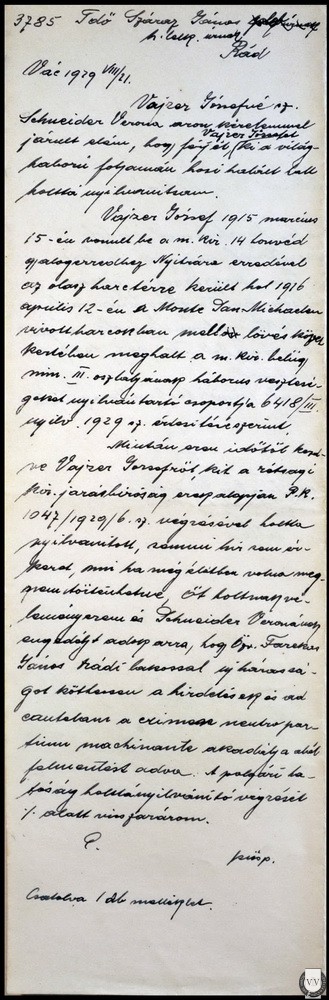 3785 Fdő Száraz János
h. lelk. úrnak
Rád
Vác 1929 VIII/21.
Vajzer Józsefné sz.
Schneider Verona azon kérelemmel
járult elém, hogy férjét Vajzer Józsefet (ki a világ-
háború folyamán hősi halált halt
holttá nyilvánítsam.
Vajzer József 1915 március
15-én vonult be a m. kir. 14 honvéd
gyalogezredhez Nyitrára ezredével
az olasz harctérre került hol 1916
április 12-én a Monte San-Michaelen
vívott harcokban mellövés követ-
keztében meghalt a m. kir. belügy
min. III. osztályának háborús vesztesé-
geket nyilvántartó csoportja 6418/III
nyilv. 1929 sz. értesítése szerint.
Miután ezen időtől kezd-
ve Vajzer Józsefről, kit a rétsági
kir. járásbíróság ezen alapján P.K.
1047/1929/6. sz. végzésével holttá
nyilvánított, semmi hír sem ér-
kezett, ami ha még életben volna meg
nem történhetne, Őt holtnak vé-
leményezem és Schneider Veronának
engedélyt adok arra, hogy Özv. Farekas
János rádi lakossal új házassá-
got köthessen a hirdetések és ad
cautelam a crimen neutro par-
tium machinante akadálya alól
felmentést adva. A polgári ha-
tóság holttányilvánító végzését
%. alatt visszazárom.
P.
püsp.
Csatolva 1 db melléklet.
VV